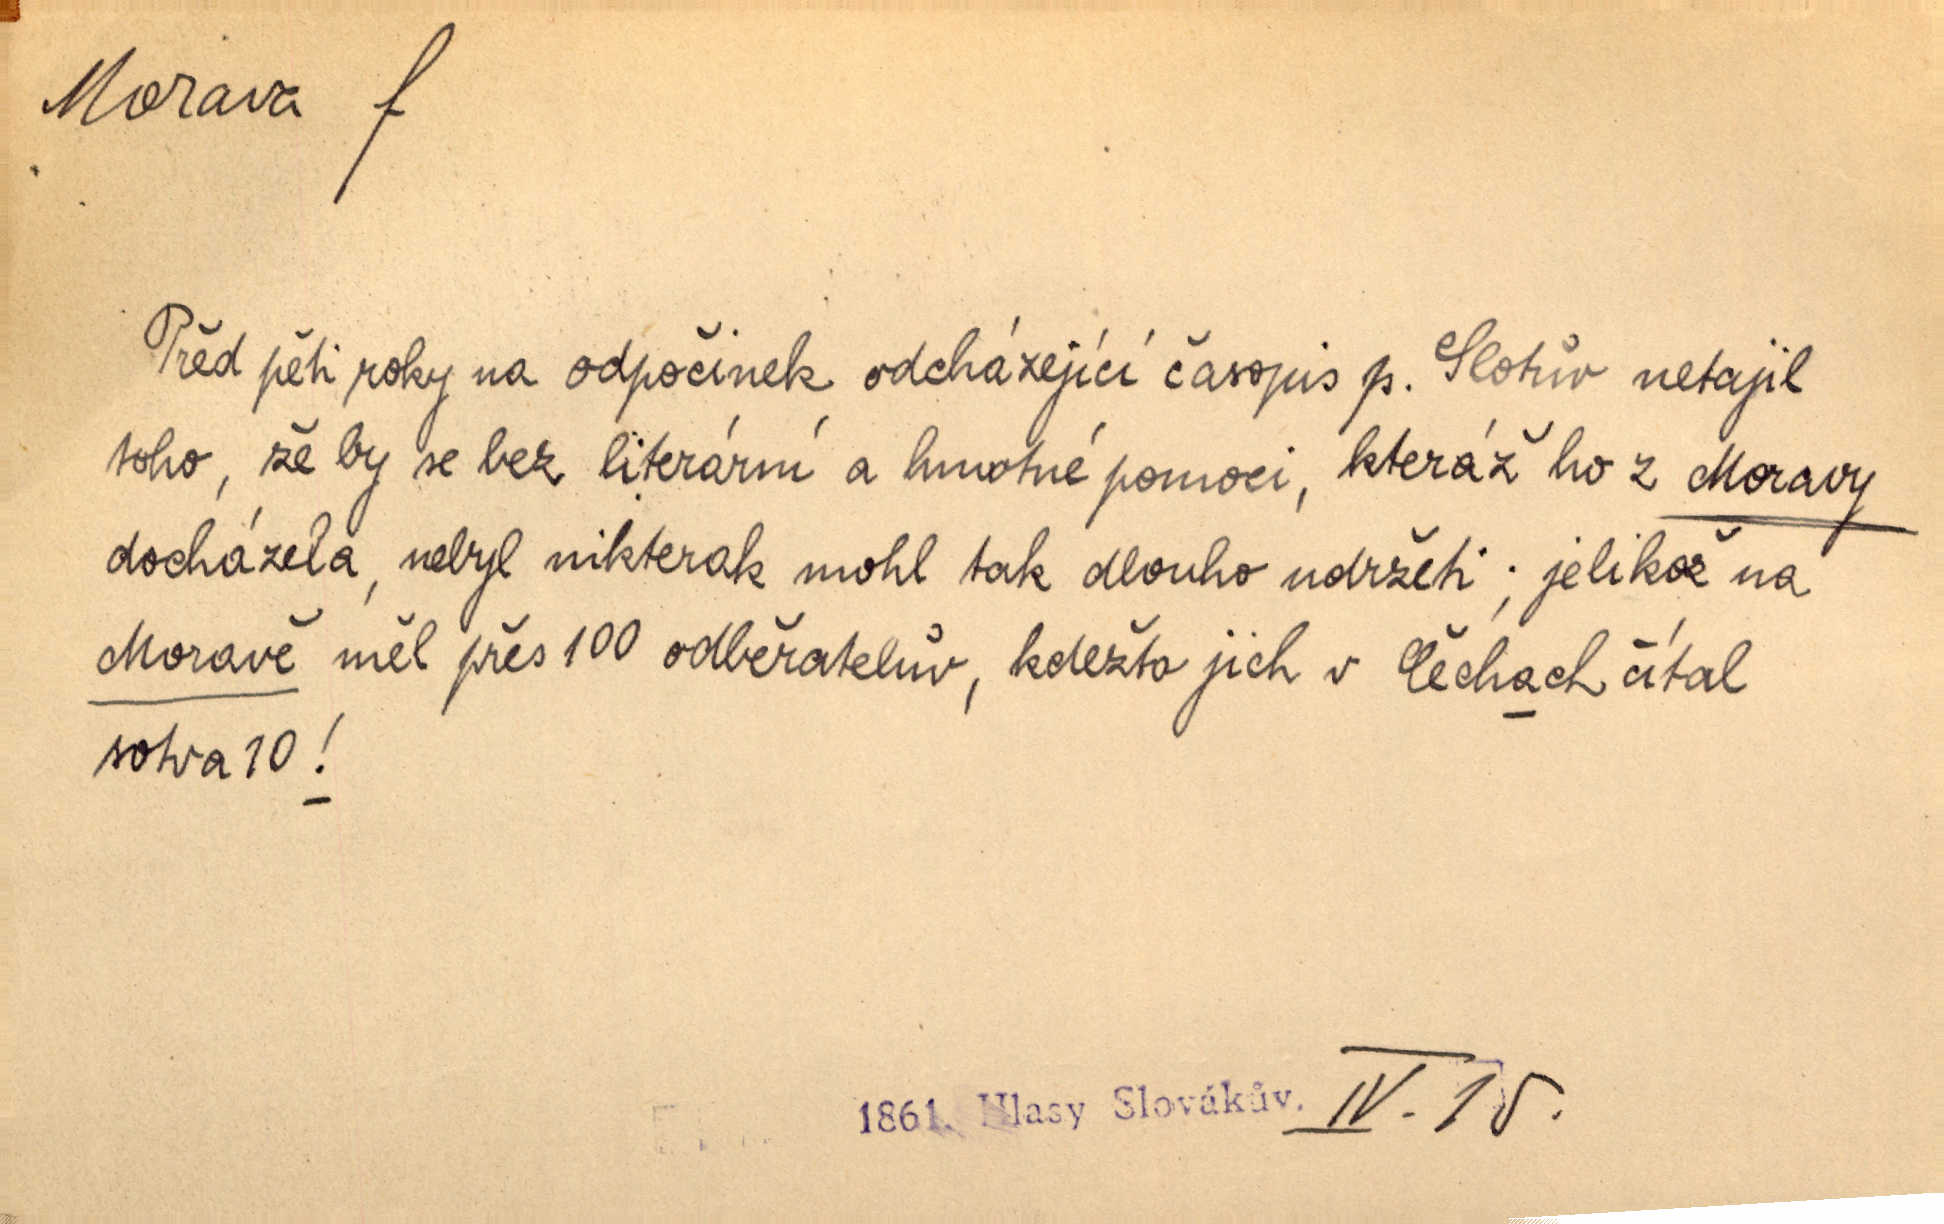 Morava f
Před pěti roky na odpočinek odcházející časopis p. Slotův netajil
toho, že by se bez literární a hmotné pomoci, kteráž ho z Moravy
docházela, nebyl nikterak mohl tak dlouho udržeti; jelikož na
Moravě měl přes 100 odběratelův, kdežto jich v Čechach čítal
sotva 10!
1861. Hlasy Slovákův. IV. 15.